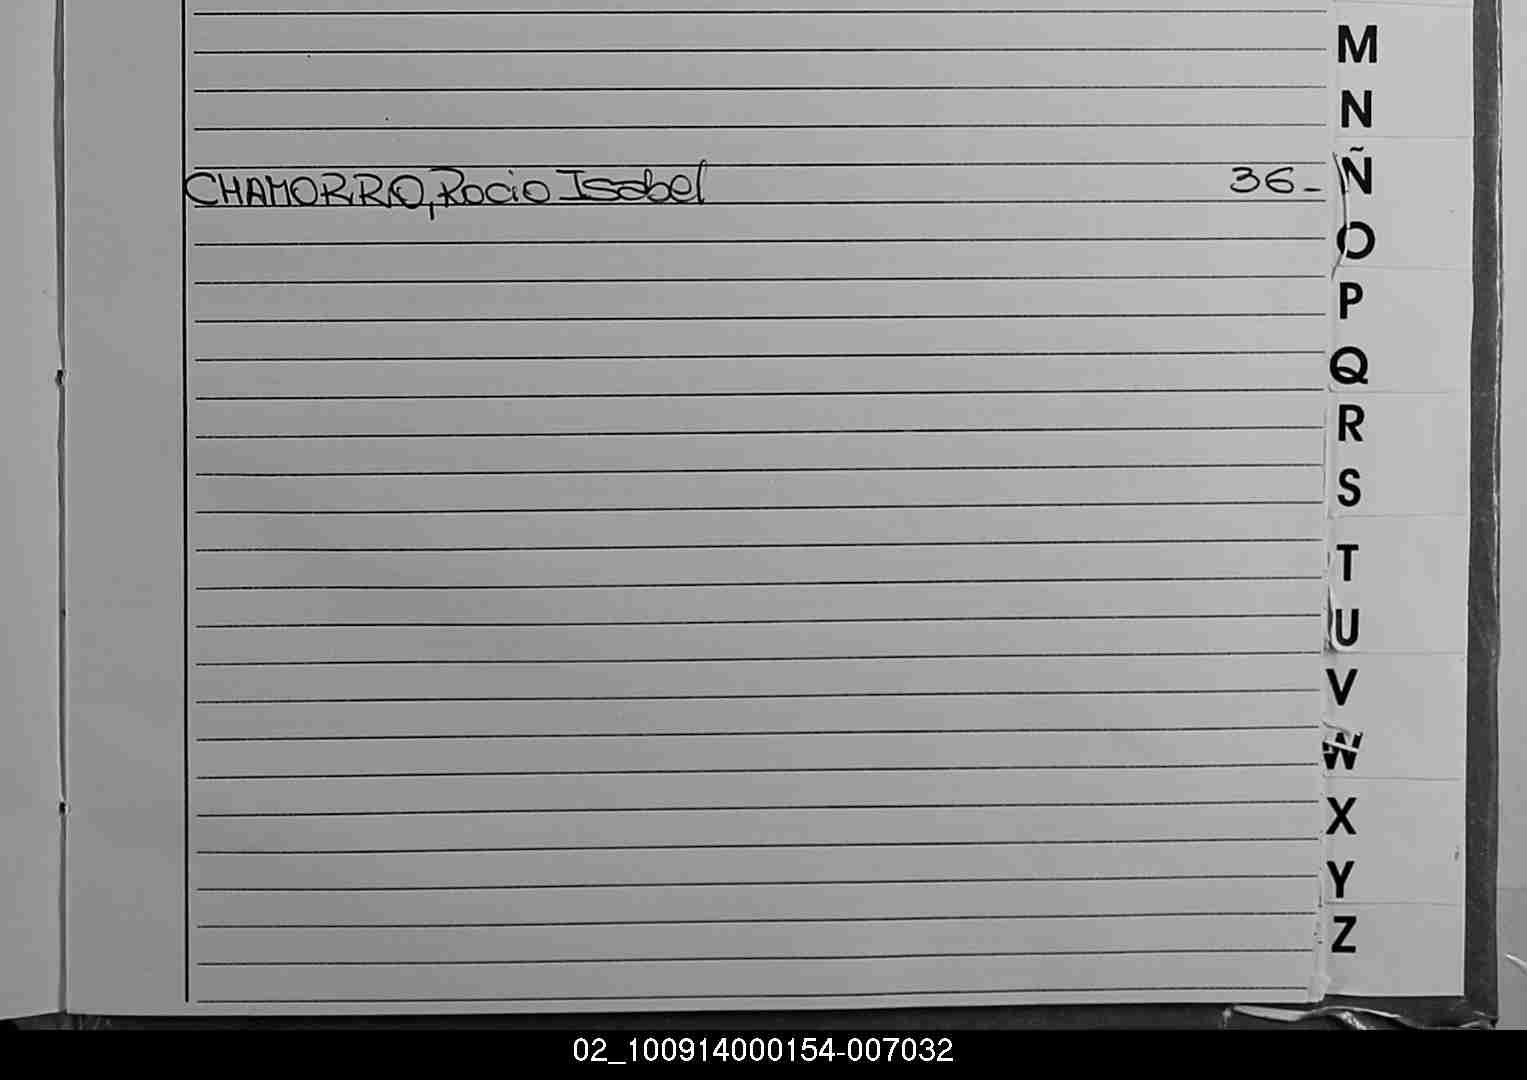 M
N
CHAMORRO, Rocio Isabel 36- Ñ
O
P
Q
R
S
T
U
V
W
X
Y
Z
02_100914000154-007032